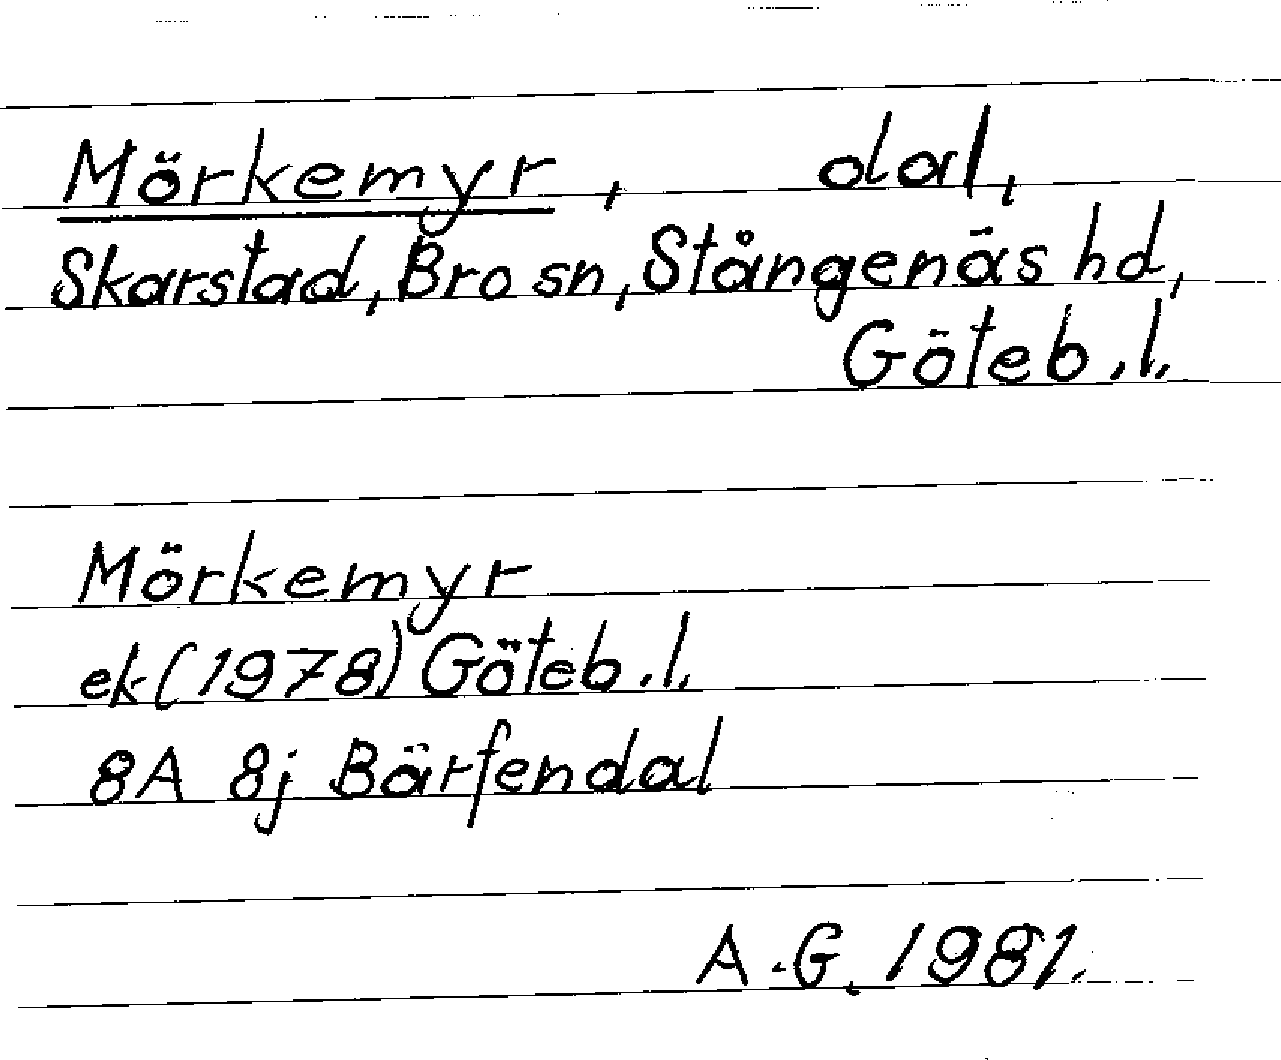 Mörkemyr, dal,
Skarstad, Bro sn, Stångenäs hd,
Göteb.l.
Mörkemyr
ek (1978) Göteb.l.
8A 8j Bärfendal
A.G. 1981.